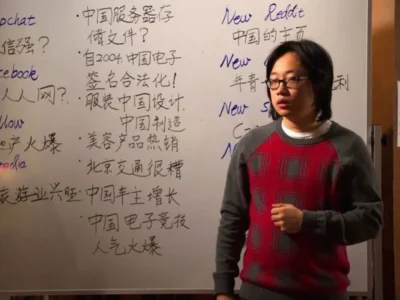 pchat
信强?
cebook
人人网?
产火爆
旅游业兴旺
•中国服务器存
储文件?
•自2004中国电子
签名合法化!
•服装中国设计,
中国制造
•美容产品热销
•北京交通很糟
•中国车主增长
•中国电子竞技
人气火爆
New Reddit
中国的主页
New
年青 利
New